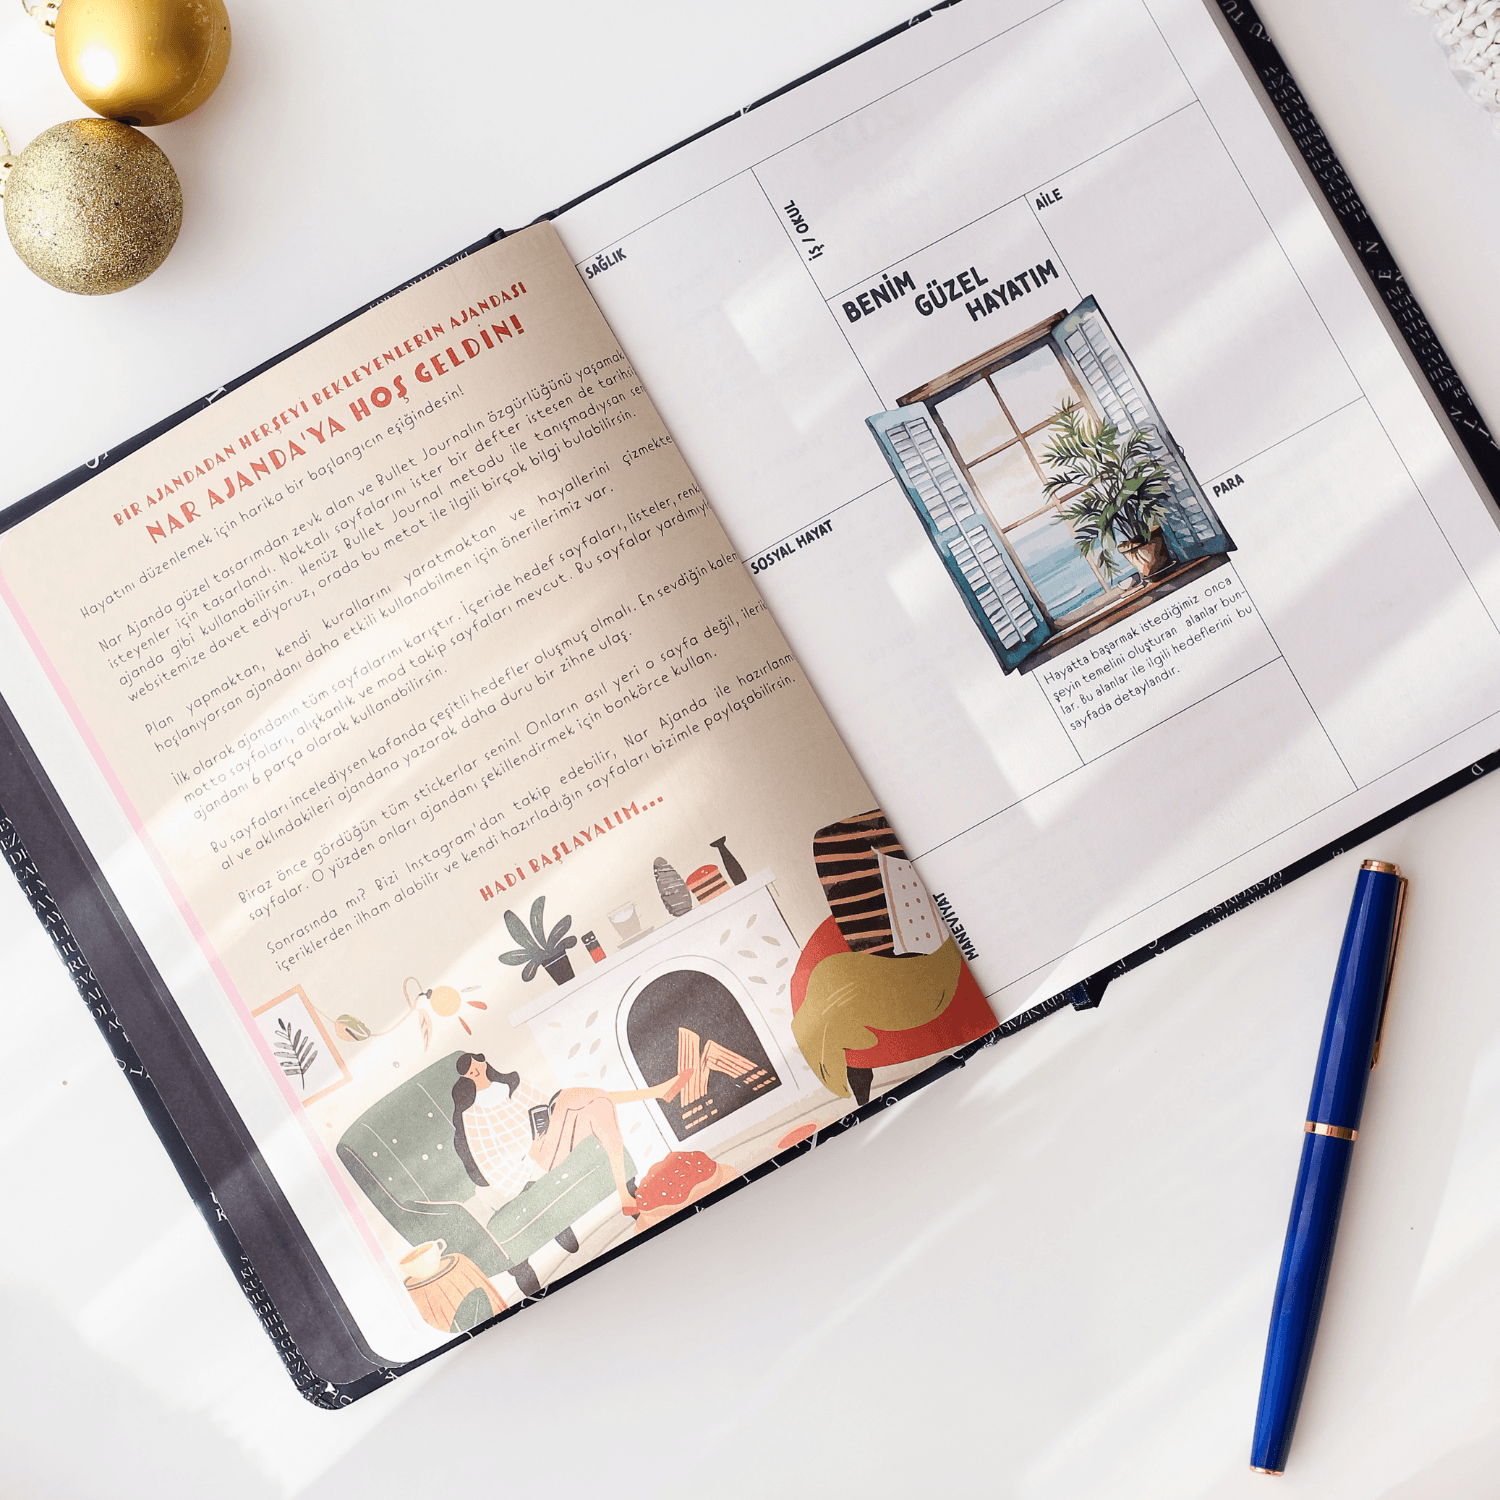 BİR AJANDADAN HERŞEYİ BEKLEYENLERİN AJANDASI
NAR AJANDA'YA HOŞ GELDİN!
Hayatını düzenlemek için harika bir başlangıcın eşiğindesin!
Nar Ajanda güzel tasarımdan zevk alan ve Bullet Journalın özgürlüğünü yaşamak
isteyenler için tasarlandı. Noktalı sayfalarını ister bir defter istesen de tarihsiz
ajanda gibi kullanabilirsin. Henüz Bullet Journal metodu ile tanışmadıysan
websitemize davet ediyoruz, orada bu metot ile ilgili birçok bilgi bulabilirsin.
Plan yapmaktan, kendi kurallarını yaratmaktan ve hayallerini çizmekten
hoşlanıyorsan ajandanı daha etkili kullanabilmen için önerilerimiz var.
İlk olarak ajandanın tüm sayfalarını karıştır. İçeride hedef sayfaları, listeler,
motto sayfaları, alışkanlık ve mod takip sayfaları mevcut. Bu sayfalar yardımıyla
ajandanı 6 parça olarak kullanabilirsin.
Bu sayfaları incelediysen kafanda çeşitli hedefler oluşmuş olmalı. En sevdiğin
al ve aklındakileri ajandana yazarak daha duru bir zihne ulaş.
Biraz önce gördüğün tüm stickerlar senin! Onların asıl yeri o sayfa değil,
sayfalar. O yüzden onları ajandanı şekillendirmek için bonkörce kullan.
Sonrasında mı? Bizi Instagram'dan takip edebilir, Nar Ajanda ile
içeriklerden ilham alabilir ve kendi hazırladığın sayfaları bizimle paylaşabilirsin.
HADİ BAŞLAYALIM...
SAĞLIK
İŞ / OKUL
AİLE
BENİM
GÜZEL
HAYATIM
SOSYAL HAYAT
PARA
Hayatta başarmak istediğimiz onca
şeyin temelini oluşturan alanlar bun-
lar. Bu alanlar ile ilgili hedeflerini bu
sayfada detaylandır.
MANEVİYAT